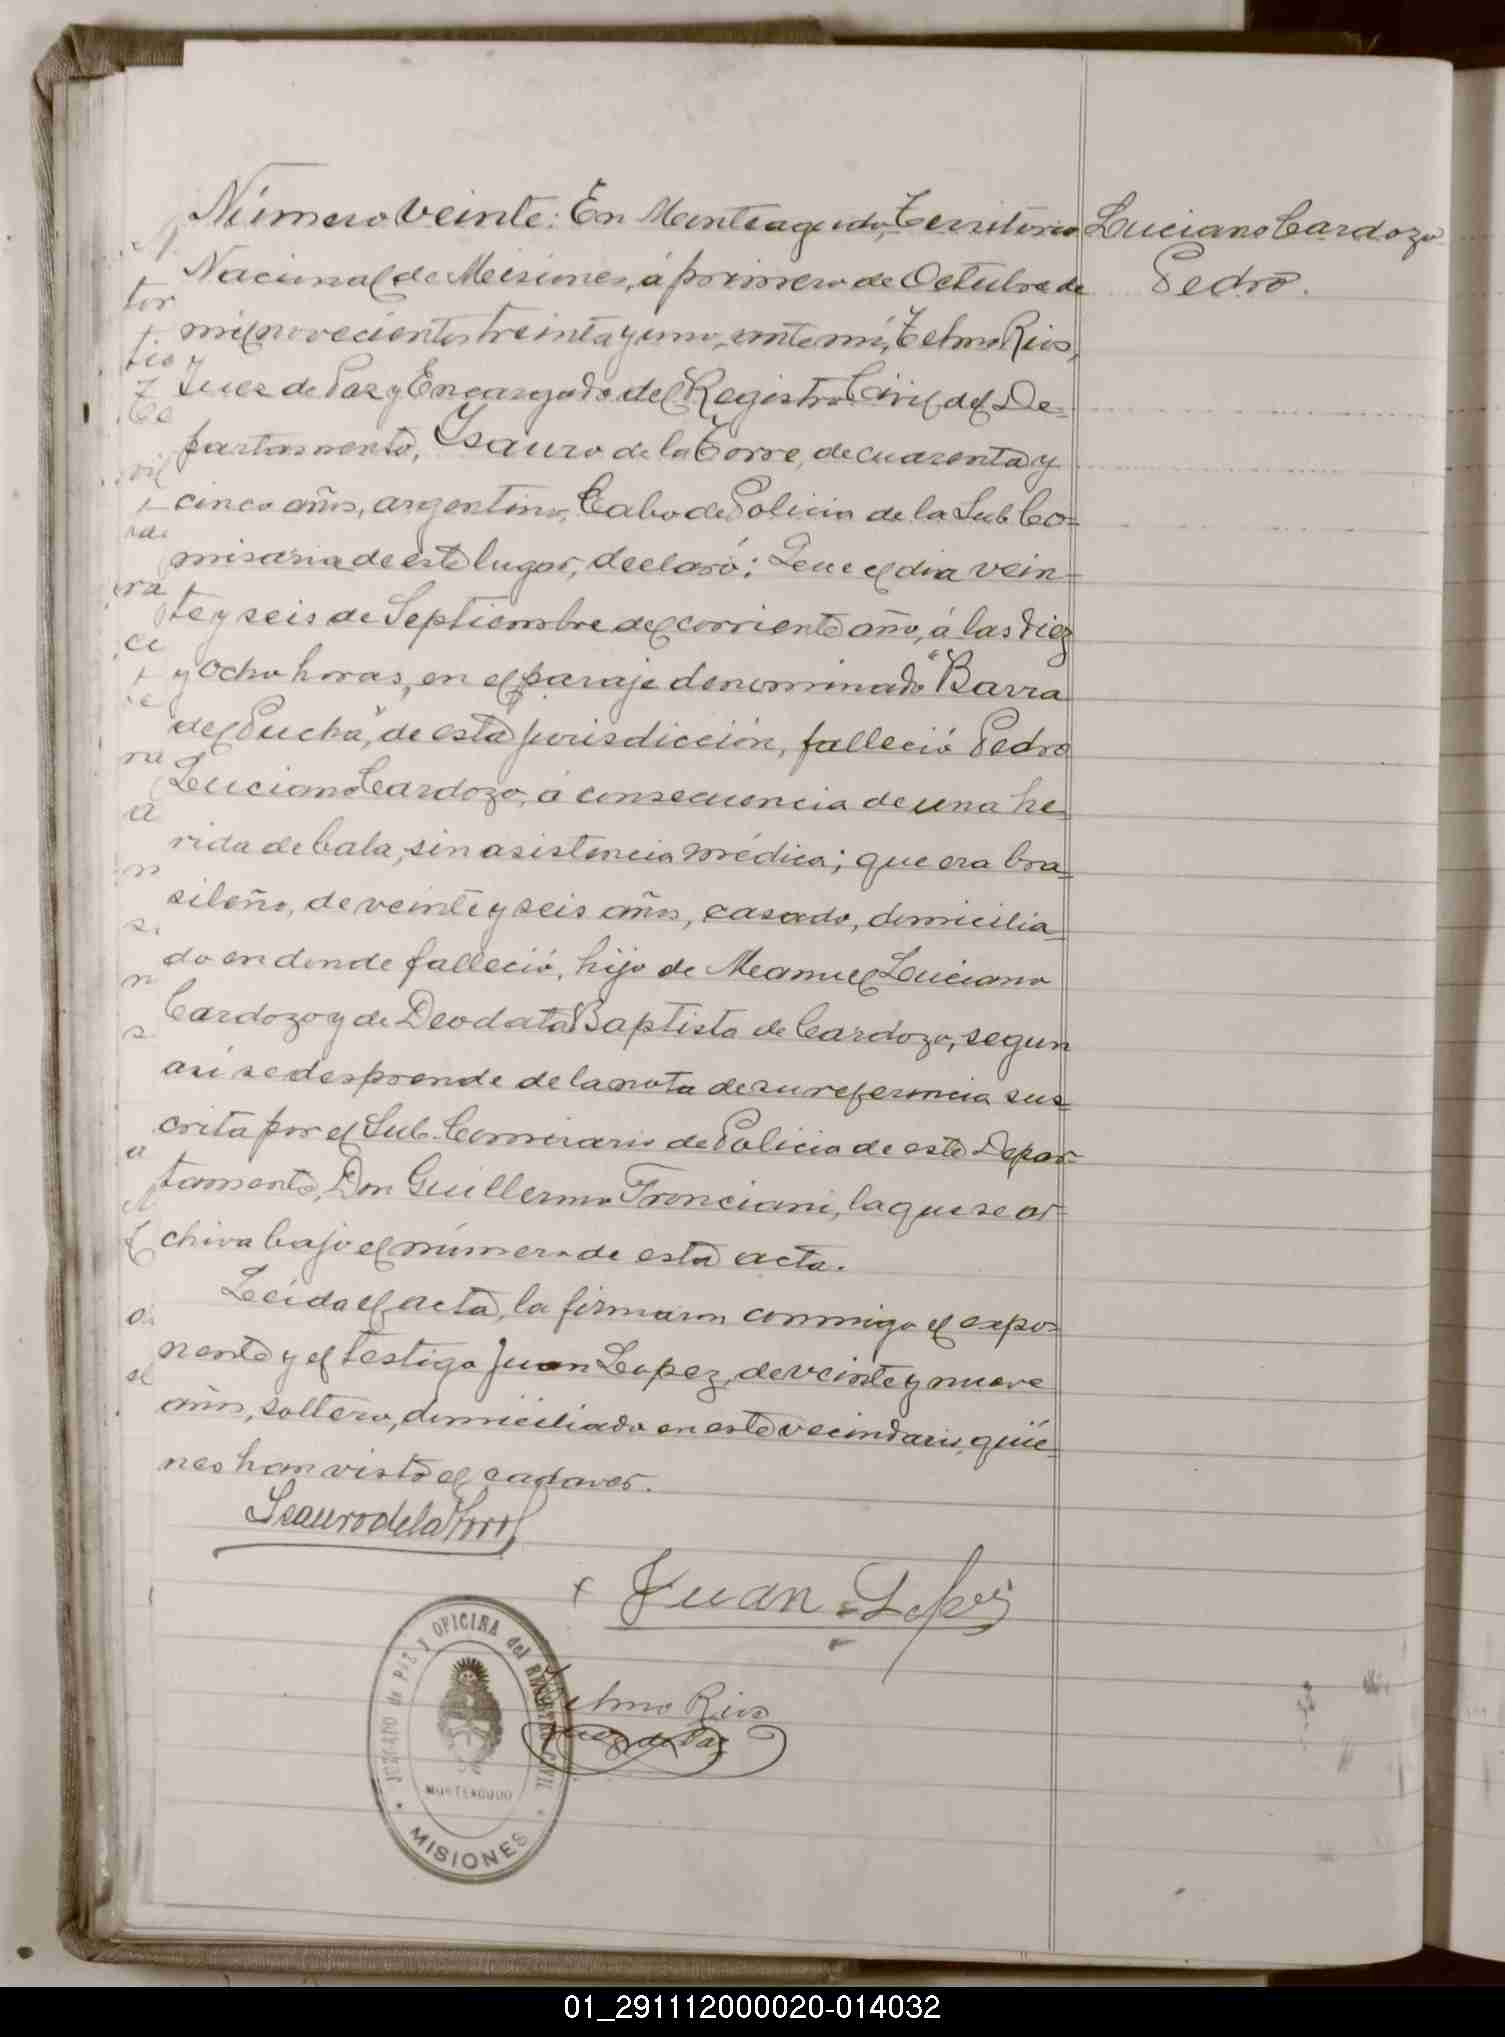 Número veinte: En Monteagudo, Territorio
Nacional de Misiones, á primero de Octubre de
mil novecientos treinta y uno, ante mí, Telmo Rios,
Juez de Paz y Encargado del Registro Civil del De=
partamento, Isauro de la Torre, de cuarenta y
cinco años, argentino, Cabo de Policia de la Sub Co=
misaria de este lugar, declaró: Que el dia vein=
te y seis de Septiembre del corriente año, á las diez
y ocho horas, en el paraje denominado "Barra
del Puchá", de esta jurisdicción, falleció Pedro
Luciano Cardozo, á consecuencia de una he=
rida de bala, sin asistencia médica; que era bra=
sileño, de veinte y seis años, casado, domicilia=
do en donde falleció, hijo de Manuel Luciano
Cardozo y de Deodata Baptista de Cardozo, segun
asi se desprende de la nota de su referencia sus=
crita por el Sub. Comisario de Policia de este Depar=
tamento, Don Guillermo Tronciani, la que se ar=
chiva bajo el número de esta acta.
Leida el acta, la firmaron conmigo el expo=
nente y el testigo Juan Lopez, de veinte y nueve
años, soltero, domiciliado en este vecindario, quie=
nes han visto el cadaver.
Isauro de la Torre
x Juan Lopez
Telmo Rios
Juez de Paz
JUZGADO de PAZ Y OFICINA del REGISTRO CIVIL
MONTEAGUDO
MISIONES
Luciano Cardozo
Pedro.
01_291112000020-014032